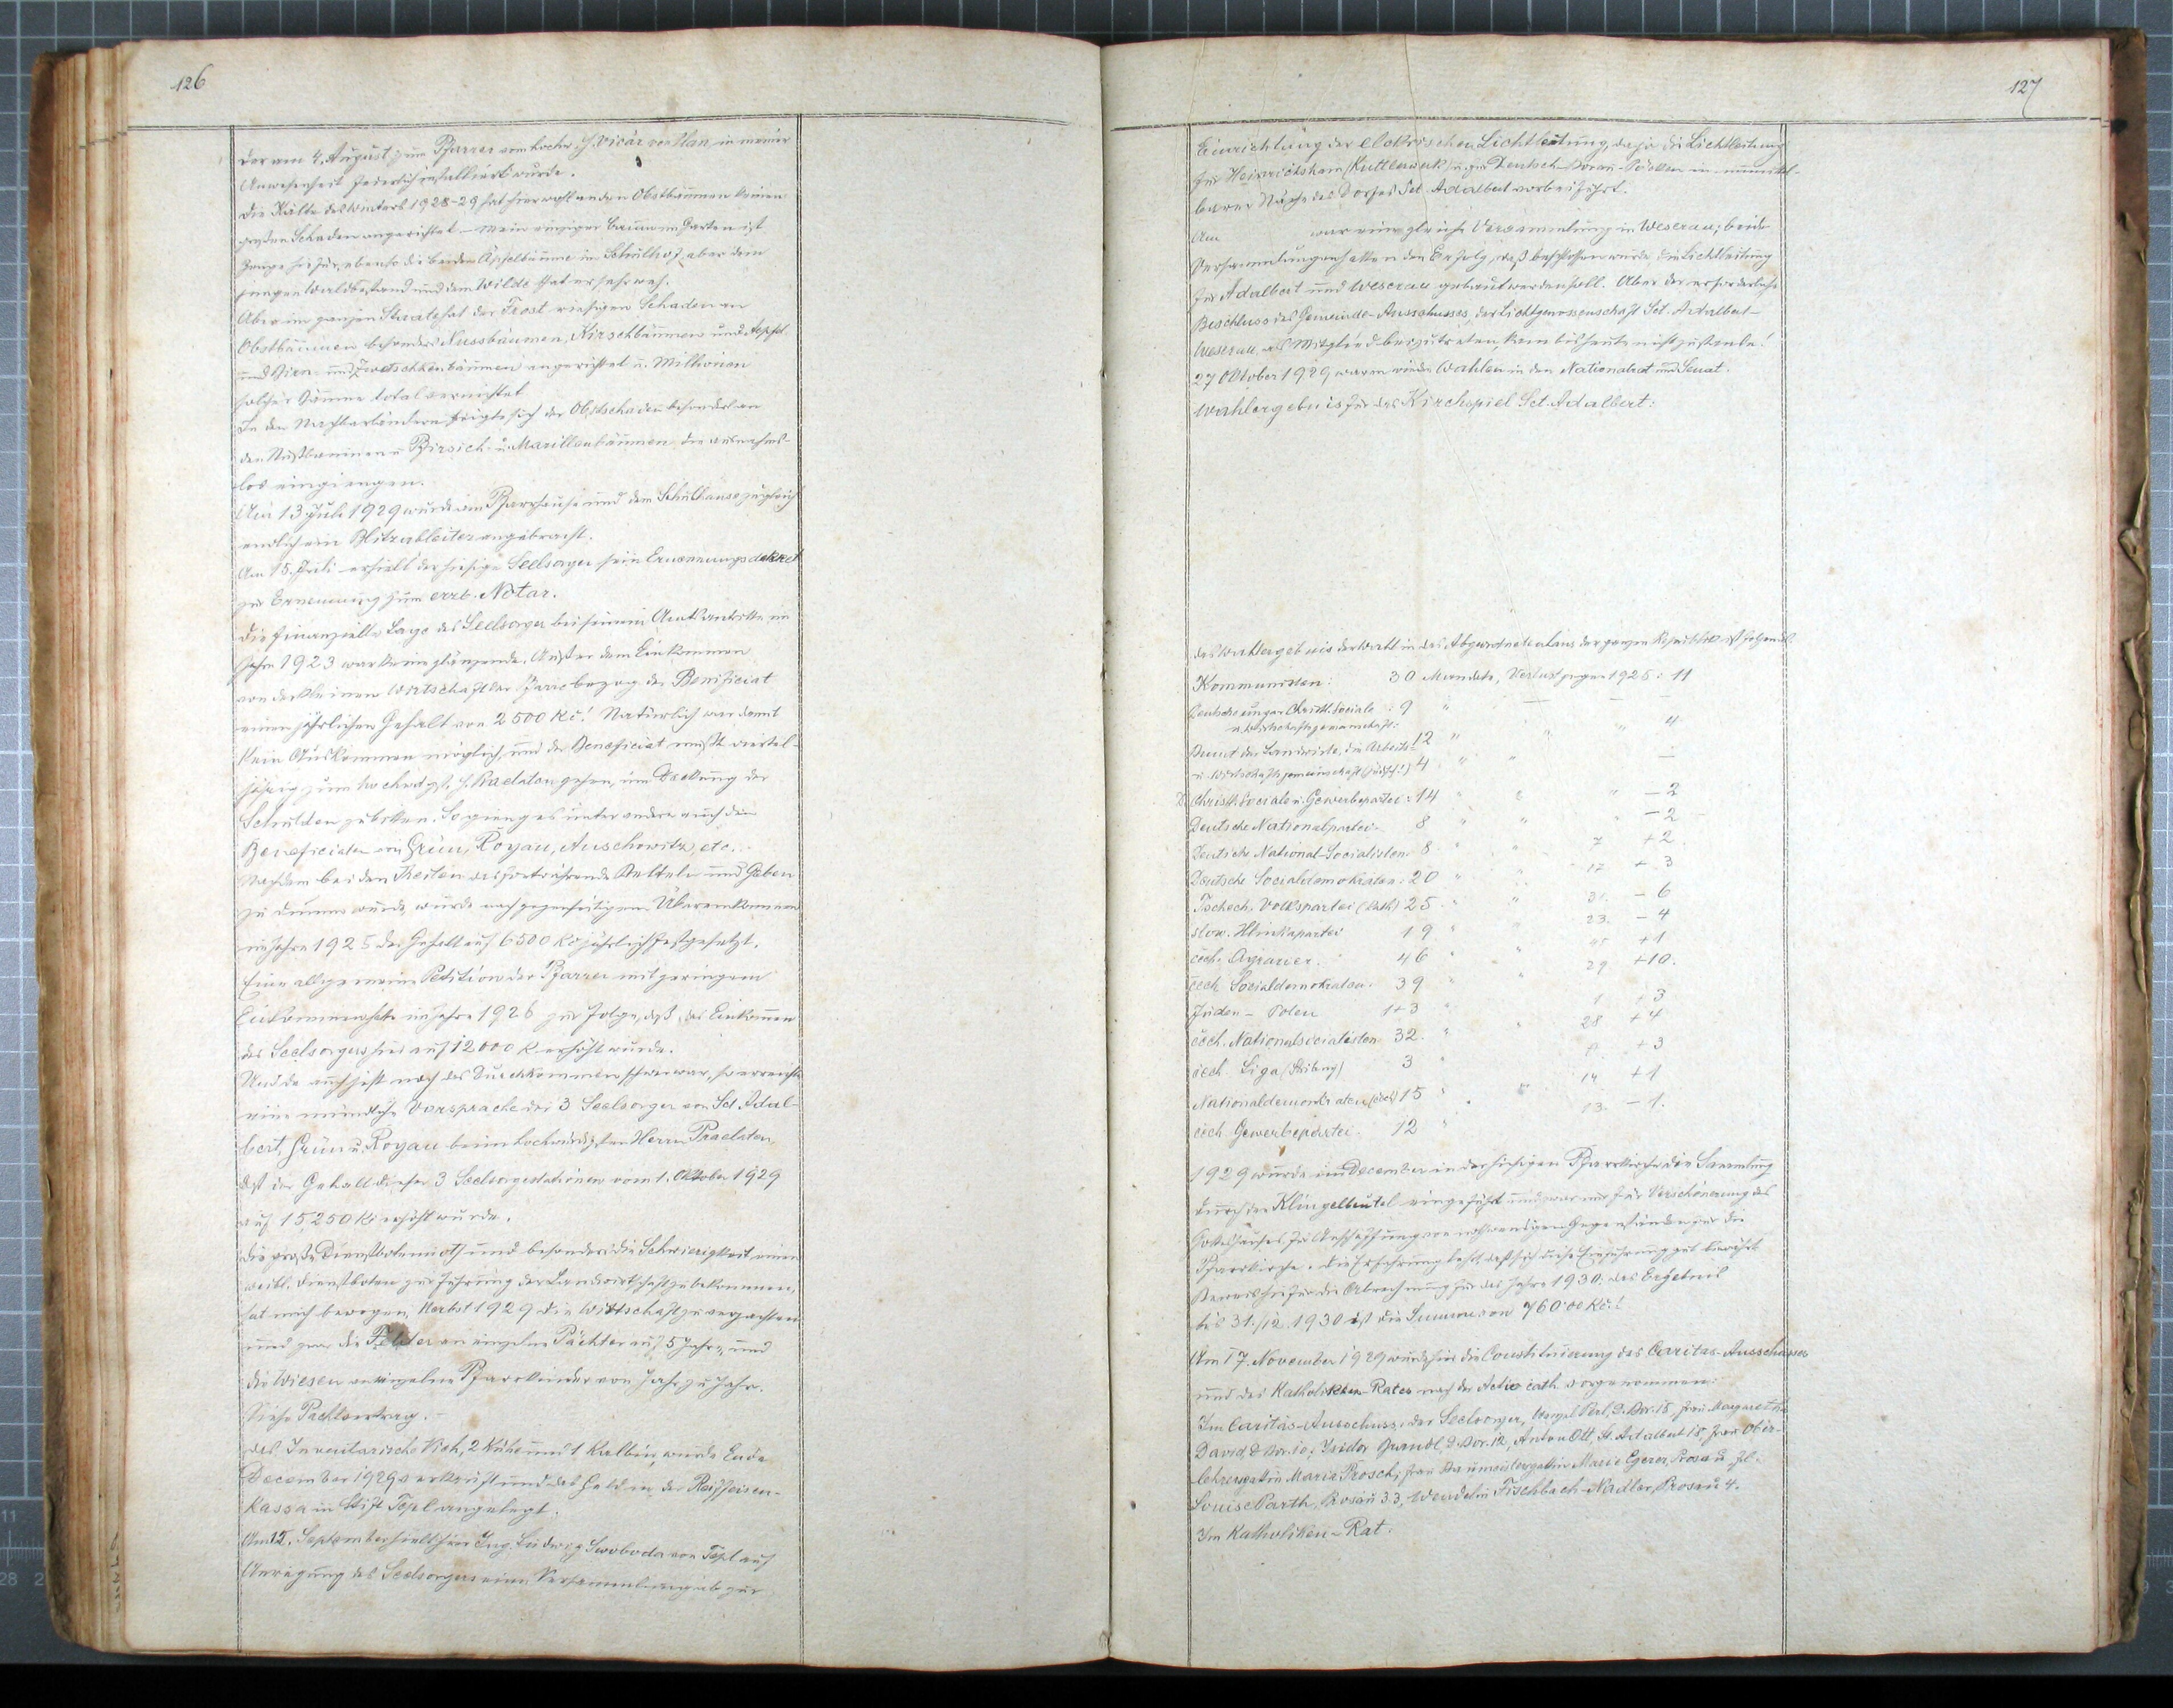 126
der am 4. August zum Pfarrer vom hochw. H. Vicär von Plan in meiner
Anwesenheit feierlich installiert wurde.
Die Kälte des Winters 1928-29 hat hier wohl an den Obstbäumen keinen
großen Schaden angerichtet - mein einziger Baum im Garten ist
Zeuge hiefür, ebenso die beiden Äpfelbäume im Schulhof, aber dem
jungen Waldbestand und dem Wilde that er sehr weh.
Aber im ganzen Staate hat der Frost riesigen Schaden an
Obstbäumen besonders Nussbäumen, Kirschbäumen und Apfel
und Birn- und Zwetschkenbäumen angerichtet u. Millionen
solcher Bäume total vernichtet
In den Nachbarländern zeigte sich der Obstschaden besonders an
den Nußbäumen u. Pirsich- u. Marillenbäumen die ausnahms-
los eingiengen.
Am 13 Juli 1929 wurde am Pfarrhause und dem Schulhause zugleich
endlich ein Blitzableiter angebracht.
Am 15. Juli erhielt der hiesige Seelsorger sein Ernennungsdekret
zur Ernennung zum erzb. Notar.
Die finanzielle Lage des Seelsorger bei seinem Amtsantritte im
Jahre 1923 war keine glänzende. Außer dem Einkommen
von der kleinen Wirtschaft der Pfarre bezog der Benificiat
einen jährlichen Gehalt von 2500 Kč! Natürlich war damit
kein Auskommen möglich, und der Beneficiat mußte viertel-
jährig zum hochwdgst. H. Praelaten gehen, um Deckung der
Schulden zu bitten. So gieng es unter andern auch den
Beneficiaten von Grün, Royau, Auschowitz, etc.
Nachdem beiden Theilen das fortwährende Betteln und Geben
zu dumm wurde, wurde nach gegenseitigem Übereinkommen
im Jahre 1925 der Gehalt auf 6500 Kč jährlich festgesetzt.
Eine allgemeine Petition der Pfarrer mit geringem
Einkommen hatte im Jahre 1926 zur Folge, daß das Einkommen
des Seelsorgers hier auf 12000 K erhöht wurde.
Und da auch jetzt noch das Durchkommen schwer war, so erreichte
eine mündliche Vorsprache der 3 Seelsorger von Sct. Adal-
bert, Grün u. Royau beim hochwürdigsten Herrn Praelaten,
daß der Gehalt dieser 3 Seelsorgestationen vom 1. Oktober 1929
auf 15.250 Kč erhöht wurde.
Die große Dienstbotennoth und besonders die Schwierigkeit einen
weibl. Dienstboten zur Führung der Landwirtschaft zu bekommen,
hat mich bewogen, Herbst 1929 die Wirtschaft zu verpachten
und zwar die Felder an einzelne Pächter auf 5 Jahre, und
die Wiesen an einzelne Pfarrkinder von Jahr zu Jahr.
Siehe Pachtvertrag. -
Das Inventarische Vieh, 2 Kühe und 1 Kalbin, wurde Ende
December 1929 verkauft und das Geld in der Raiffeisen-
kassa in Stift Tepl angelegt.
Am 15. September hielt hier Ing. Ludwig Swoboda von Tepl auf
Anregung des Seelsorgers eine Versammlung ab zur
127
Einrichtung der elektrischen Lichtleitung, da ja die Lichtleitung
für Heinrichsham (Kuttlerwerk) u. für Deutsch- in unmittel-
barer Nähe des Dorfes Sct. Adalbert vorbei führt.
Am war eine gleiche Versammlung in Weserau; beide
Versammlungen hatten den Erfolg, daß beschlossen wurde die Lichtleitung
für Adalbert und Weserau gebaut werden soll. Aber der erforderliche
Beschluss des Gemeinde-Ausschusses, der Lichtgenossenschaft Sct. Adalbert-
Weserau, als Mitglied beizutreten, kam bis heute nicht zustande!
27 Oktober 1929 waren wieder Wahlen in den Nationalrat und Senat.
Wahlergebnis für das Kirchspiel Sct. Adalbert:
Das Wahlergebnis der Wahl in das Abgeordnetenhaus der ganzen Republik ist folgendes
Kommunisten: 30 Mandate, Verlust gegen 1925: 11
Deutsche ungar Christl. Sociale: 9 " — — —
u. Wirtschaftsgemeinschaft:
Bund der Landwirte, die Arbeits- 12 " " " 4
u. Wirtschaftsgemeinschaft 4 " " —
D. Christl. Sociale u. Gewerbepartei: 14 " " " - 2
Deutsche Nationalpartei. 8 " " " - 2
Deutsche National-Socialisten. 8 " " 7 + 2.
Deutsche Socialdemokraten: 20 " " 17 + 3
Tschech. Volkspartei (kath.) 25. " " 31. - 6
slow. Hlinkapartei 19 " " 23. - 4
čech. Agrarier. 46 " " 45 + 1
čech Socialdemokraten: 39 " " 29 + 10.
Juden - Polen 1+3 " 1 + 3
čech. Nationalsocialisten 32. " " 28 + 4
čech Liga (Stribrny) 3 " 0. + 3
Nationaldemokraten (čech) 15 " " 14 + 1
čech Gewerbepartei. 12 " 13. - 1.
1929 wurde im December in der hiesigen Pfarrkirche die Sammlung
durch den Klingelbeutel eingeführt und zwar nur für Verschönerung des
Gotteshauses für Anschaffung von nothwendigen Gegenständen für die
Pfarrkirche. Die Erfahrung lehrt, daß sich diese Einführung gut bewährt
Beweis hiefür die Abrechnung für das Jahr 1930: das Ergebnis
bis 31./12. 1930 ist die Summe von 760.00 Kč!
Am 17. November 1929 wurde hier die Constituierung des Caritas-Ausschusses
und des Katholiken-Rates nach der Actio cath. vorgenommen:
Im Caritas-Ausschuss: der Seelsorger, Wenzel Perl, D. Bor. 18, Frau Margareth
David, D Bor. 10; Isidor Grandl, D. Bor. 12, Anton Ott, St. Adalbert 18, Frau Ober-
lehrersgattin Maria Prosch; Frau Baumeistersgattin Marie Egerer, Prosau Frl.
Louise Parth, Prosau 33, Wendelin Fischbach-Nadler, Prosau 4.
Im Katholiken-Rat: